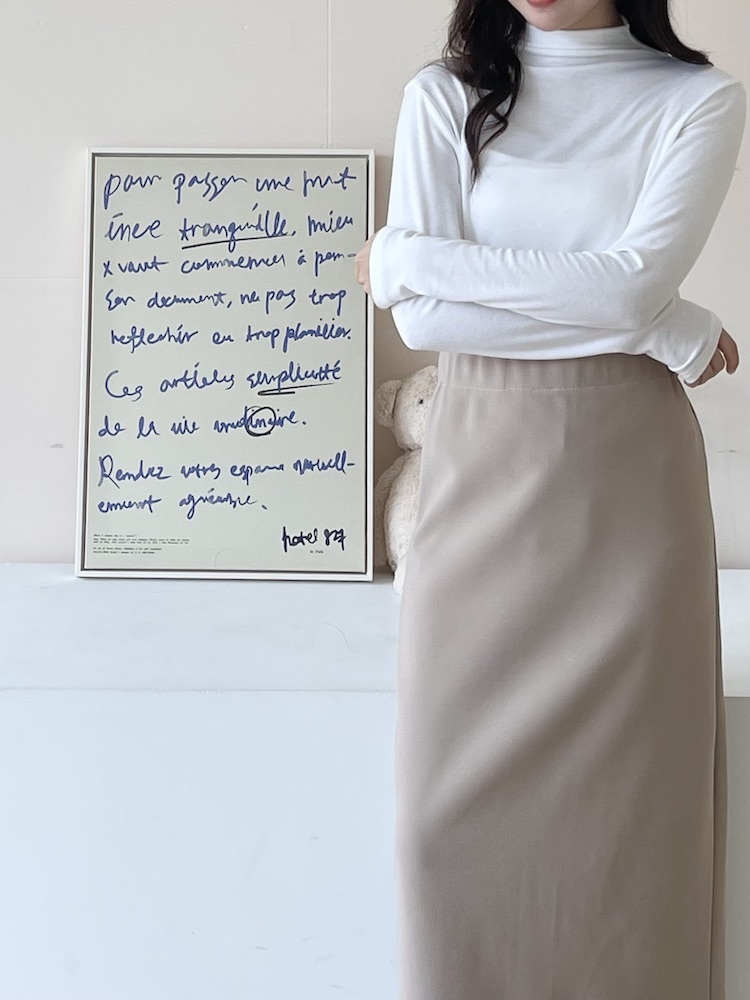 pour passer une mat
inee tranquille, mieu
x vaut commencer à pen-
ser document, ne pas trop
reflechir ou trop planifier.
Ces articles simplicité
de la vie
Rendez votres espace
agréable.
hotel 827